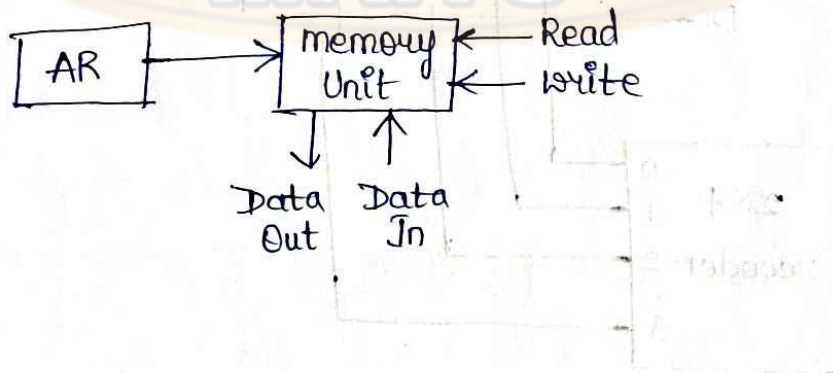 AR
memory
Unit
Read
write
Data
Out
Data
In